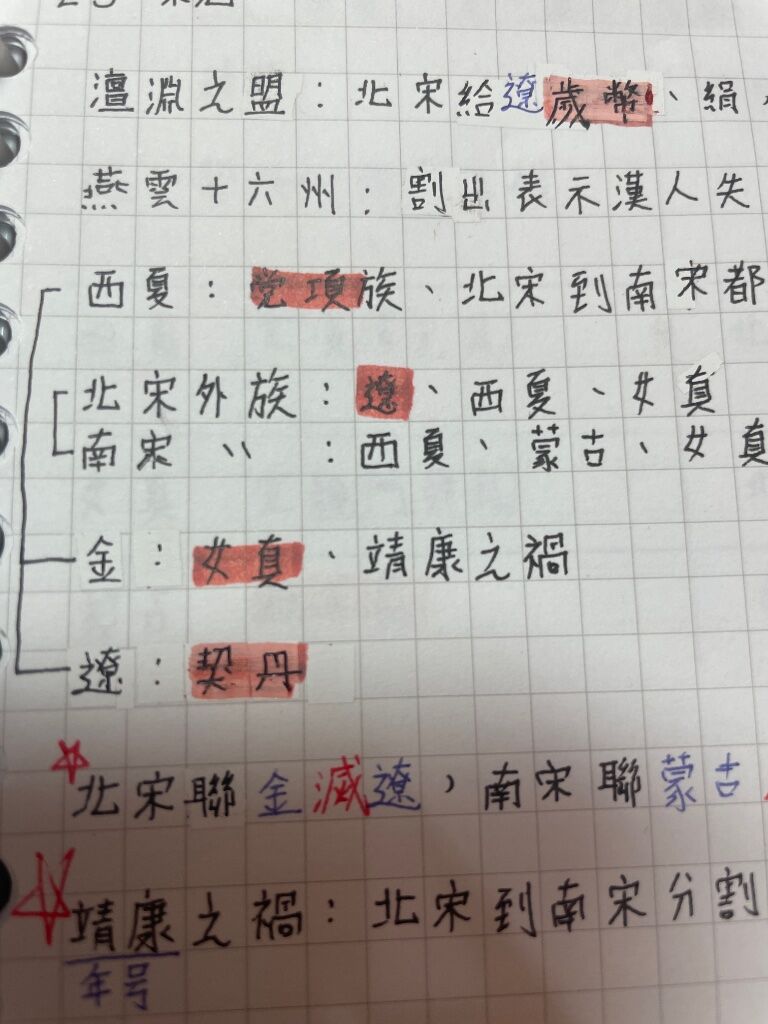 澶淵之盟：北宋給遼歲幣、絹
燕雲十六州：割出表示漢人失
西夏：党項族、北宋到南宋都
北宋外族：遼、西夏、女真
南宋〃：西夏、蒙古、女真
金：女真、靖康之禍
遼：契丹
北宋聯金滅遼，南宋聯蒙古
靖康之禍：北宋到南宋分割
年号